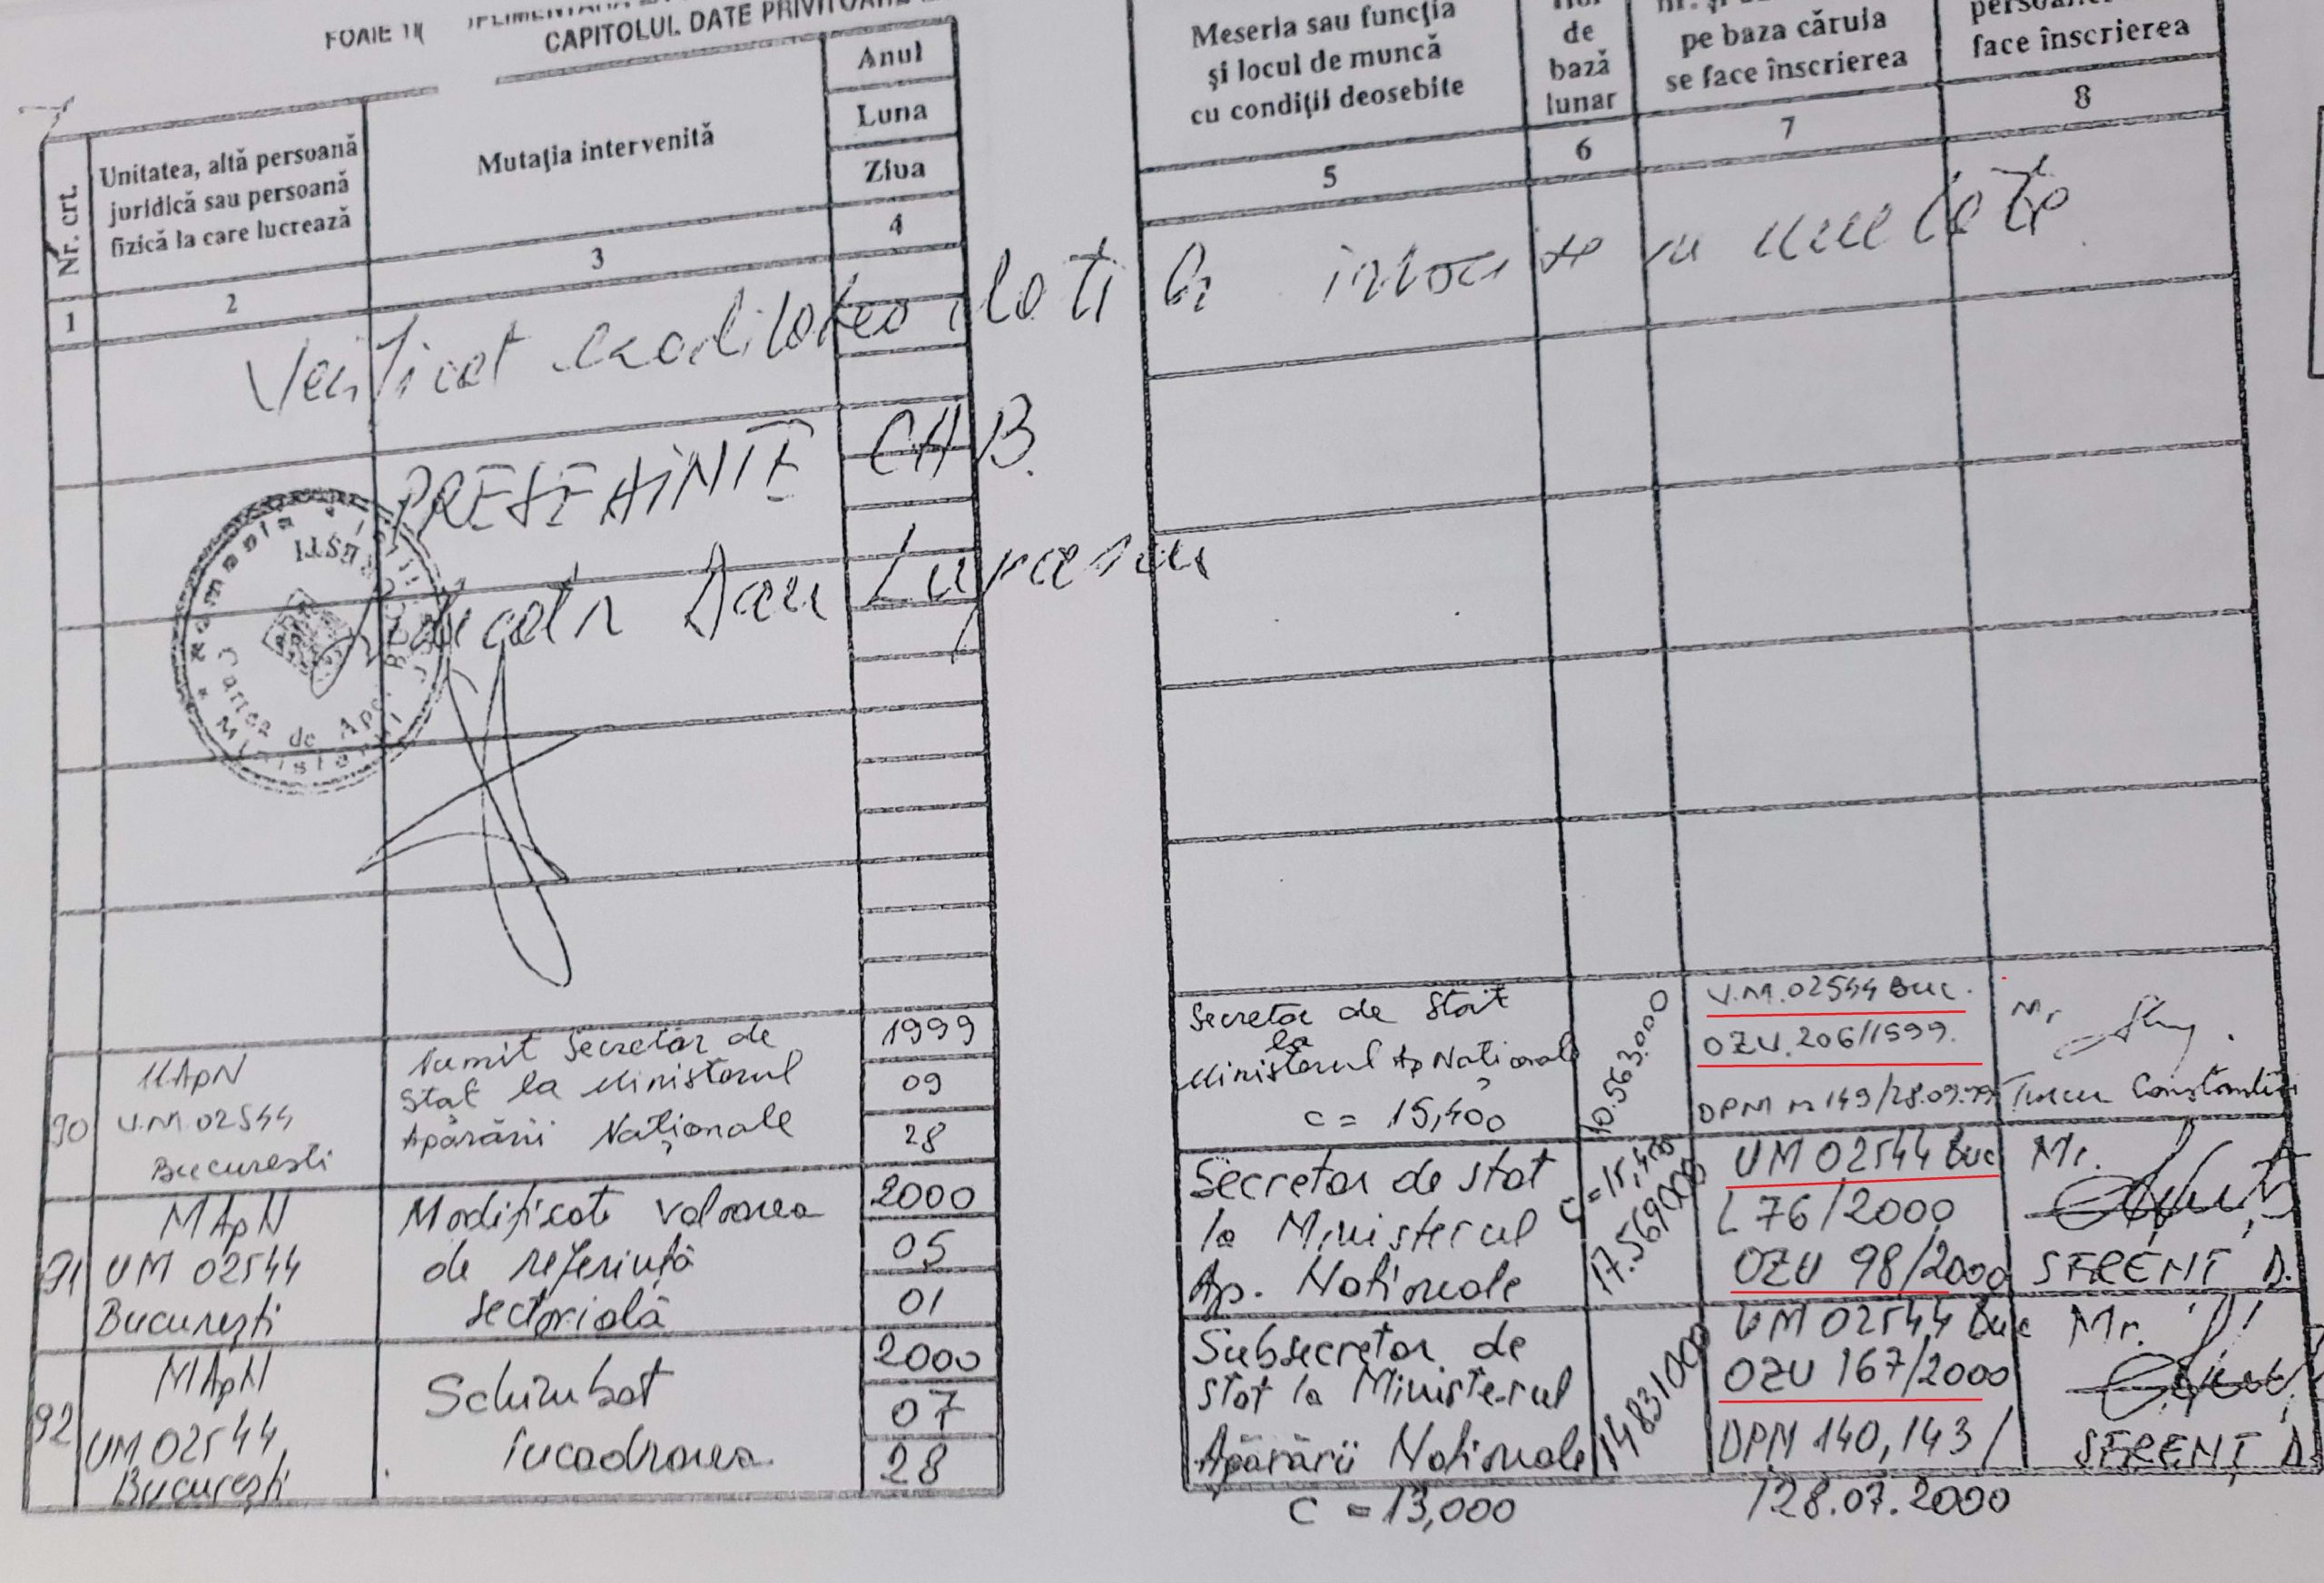 FOAIE
CAPITOLUL DATE
Nr. crt.
Unitatea, altă persoană
juridică sau persoană
fizică la care lucrează
Mutaţia intervenită
Anul
Luna
Ziua
Meseria sau funcţia
şi locul de muncă
cu condiţii deosebite
de
bază
lunar
pe baza căruia
se face înscrierea
face înscrierea
1
2
3
4
5
6
7
8
PREŞEDINTE CAB.
Dan Lupascu
90
MApN
U.M. 02544
Bucuresti
Numit Secretar de
Stat la Ministerul
Apărării Naţionale
1999
09
28
Secretar de Stat
la
Ministerul Ap Naţionale
c = 15,400
10.563.000
U.M. 02544 Buc.
OZU. 206/1999.
DPM nr 149/28.09.99
Mr
Turcu Constantin
91
MApN
UM 02544
Bucureşti
Modificat valoarea
de referinţă
sectorială
2000
05
01
Secretar de stat
la Ministerul
Ap. Nationale
c = 15,400
17.569.000
UM 02544 Buc
L 76/2000
OZU 98/2000
Mr.
SERENŢ D.
92
MApN
UM 02544
Bucureşti
Schimbat
încadrarea
2000
07
28
Subsecretar de
stat la Ministerul
Apărării Nationale
c = 13,000
14831000
UM 02544 Buc
OZU 167/2000
DPM 140, 143 /
/28.07.2000
Mr.
SERENŢ D.